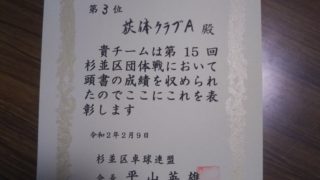 第3位
荻体クラブA 殿
貴チームは第15回
杉並区団体戦において
頭書の成績を収められ
たのでここにこれを表
彰します
令和2年2月9日
杉並区卓球連盟
会長 平山英雄